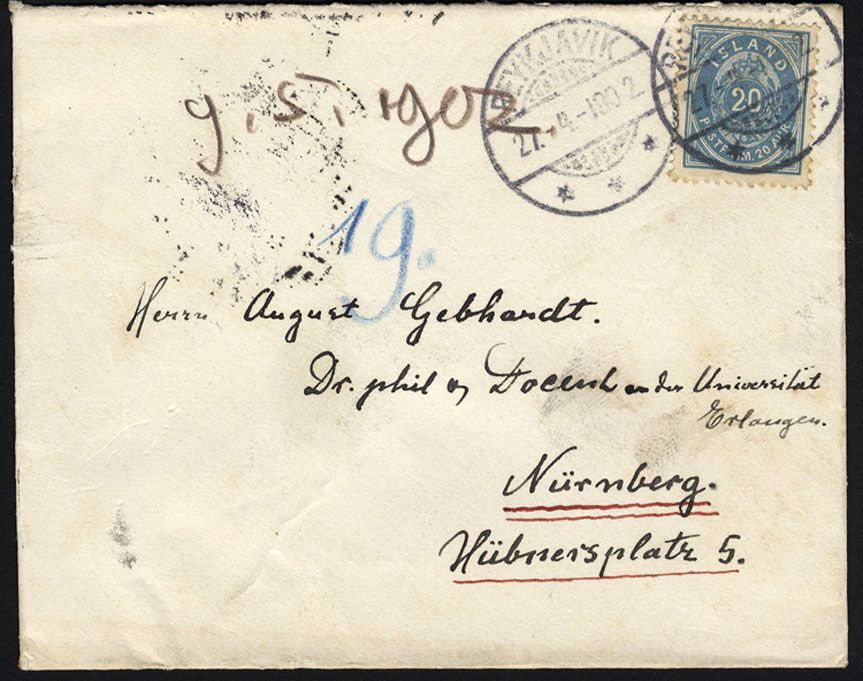 REYKJAVIK
27.-4.-1902
ÍSLAND
20
PÓSTFRÍM. 20 AUR.
27.
9. 5. 1902.
19.
Herrn August Gebhardt.
Dr. phil og Docent an der Universität
Erlangen.
Nürnberg.
Hübnersplatz 5.